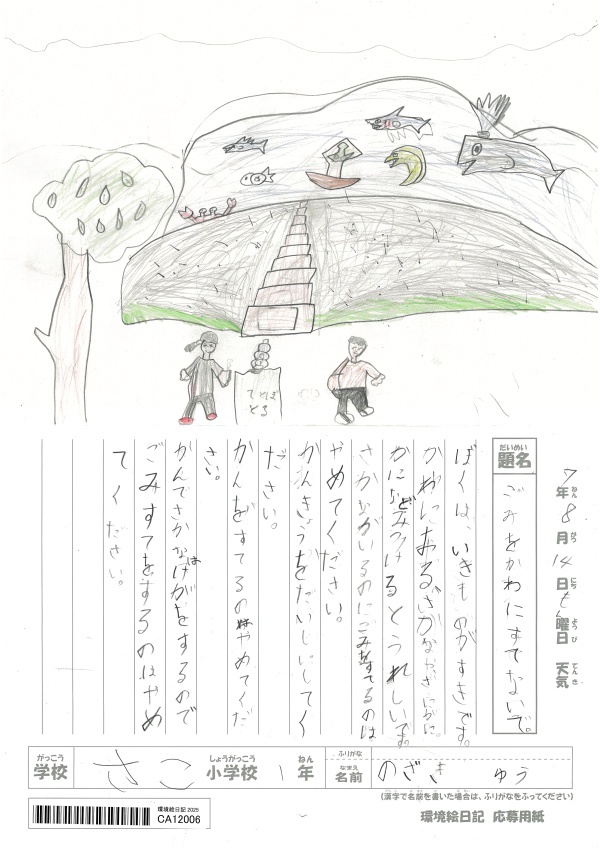 7年8月14日もく曜日 天気
ねん がつ にち ようび てんき
だいめい
題名
ごみをかわにすてないで。
ぼくは、いきものがすきです。
かわにあるさかなやざにがに。
かになどみつけるとうれしいです。
さかながいるのにごみをすてるのは
やめてください。
かんきょうをたいじにしてく
ださい。
かんをすてるのはやめてくだ
さい。
かんでさかなはけがをするので
ごみすてをするのはやめ
てください。
がっこう
学校
さこ
しょうがっこう
小学校
1
ねん
年
ふりがな
なまえ
名前
のざき ゆう
(漢字で名前を書いた場合は、ふりがなをふってください)
環境絵日記 2025
CA12006
環境絵日記 応募用紙